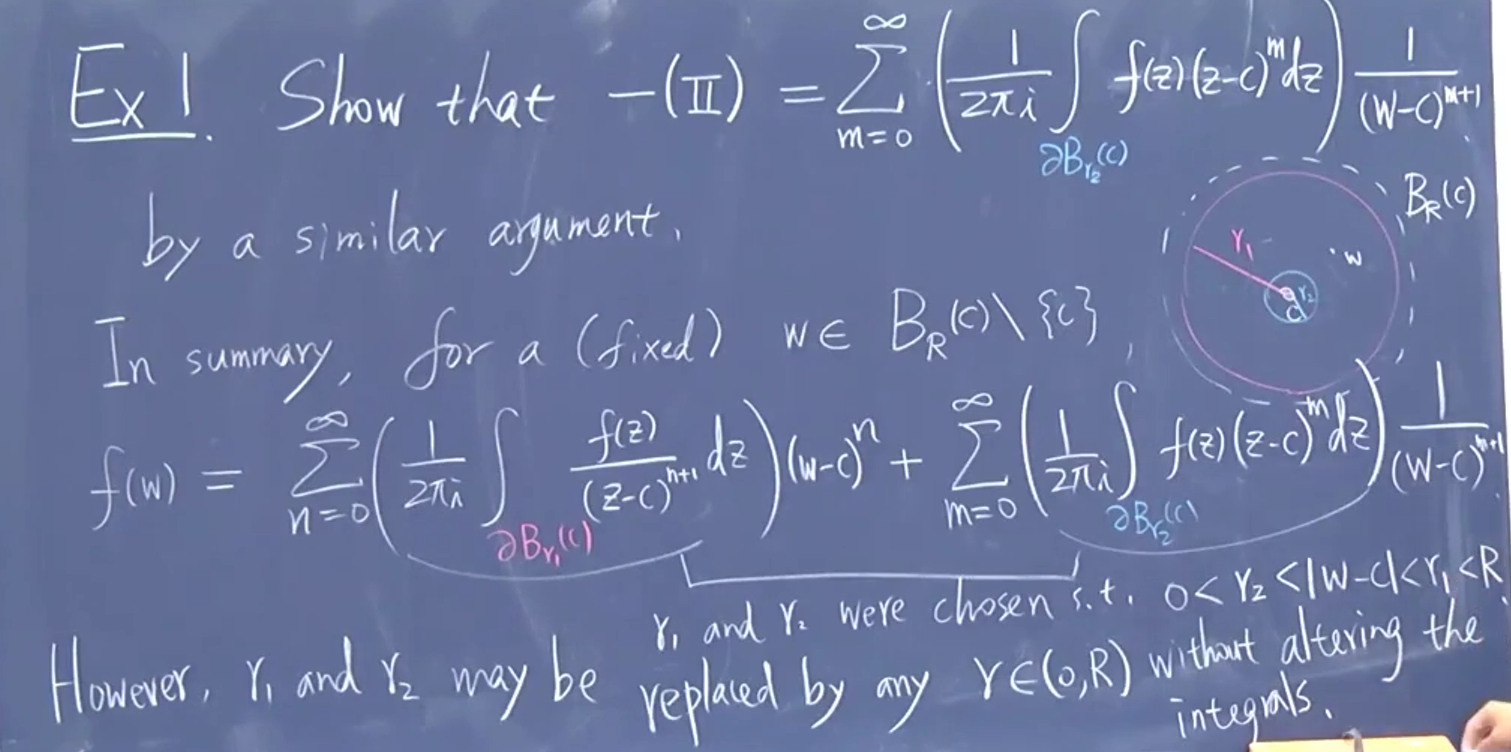 Ex 1. Show that −(II) = ∑_{m=0}^{∞} ( 1/(2πi) ∫_{∂B_{r₂}(c)} f(z)(z−c)^m dz ) 1/(w−c)^{m+1}
by a similar argument.
B_R(c)
r₁
w
r₂
c
In summary, for a (fixed) w ∈ B_R(c) \ {c},
f(w) = ∑_{n=0}^{∞} ( 1/(2πi) ∫_{∂B_{r₁}(c)} f(z)/(z−c)^{n+1} dz ) (w−c)^n + ∑_{m=0}^{∞} ( 1/(2πi) ∫_{∂B_{r₂}(c)} f(z)(z−c)^m dz ) 1/(w−c)^{m+1}
r₁ and r₂ were chosen s.t. 0 < r₂ < |w−c| < r₁ < R
However, r₁ and r₂ may be replaced by any r∈(0,R) without altering the
integrals.